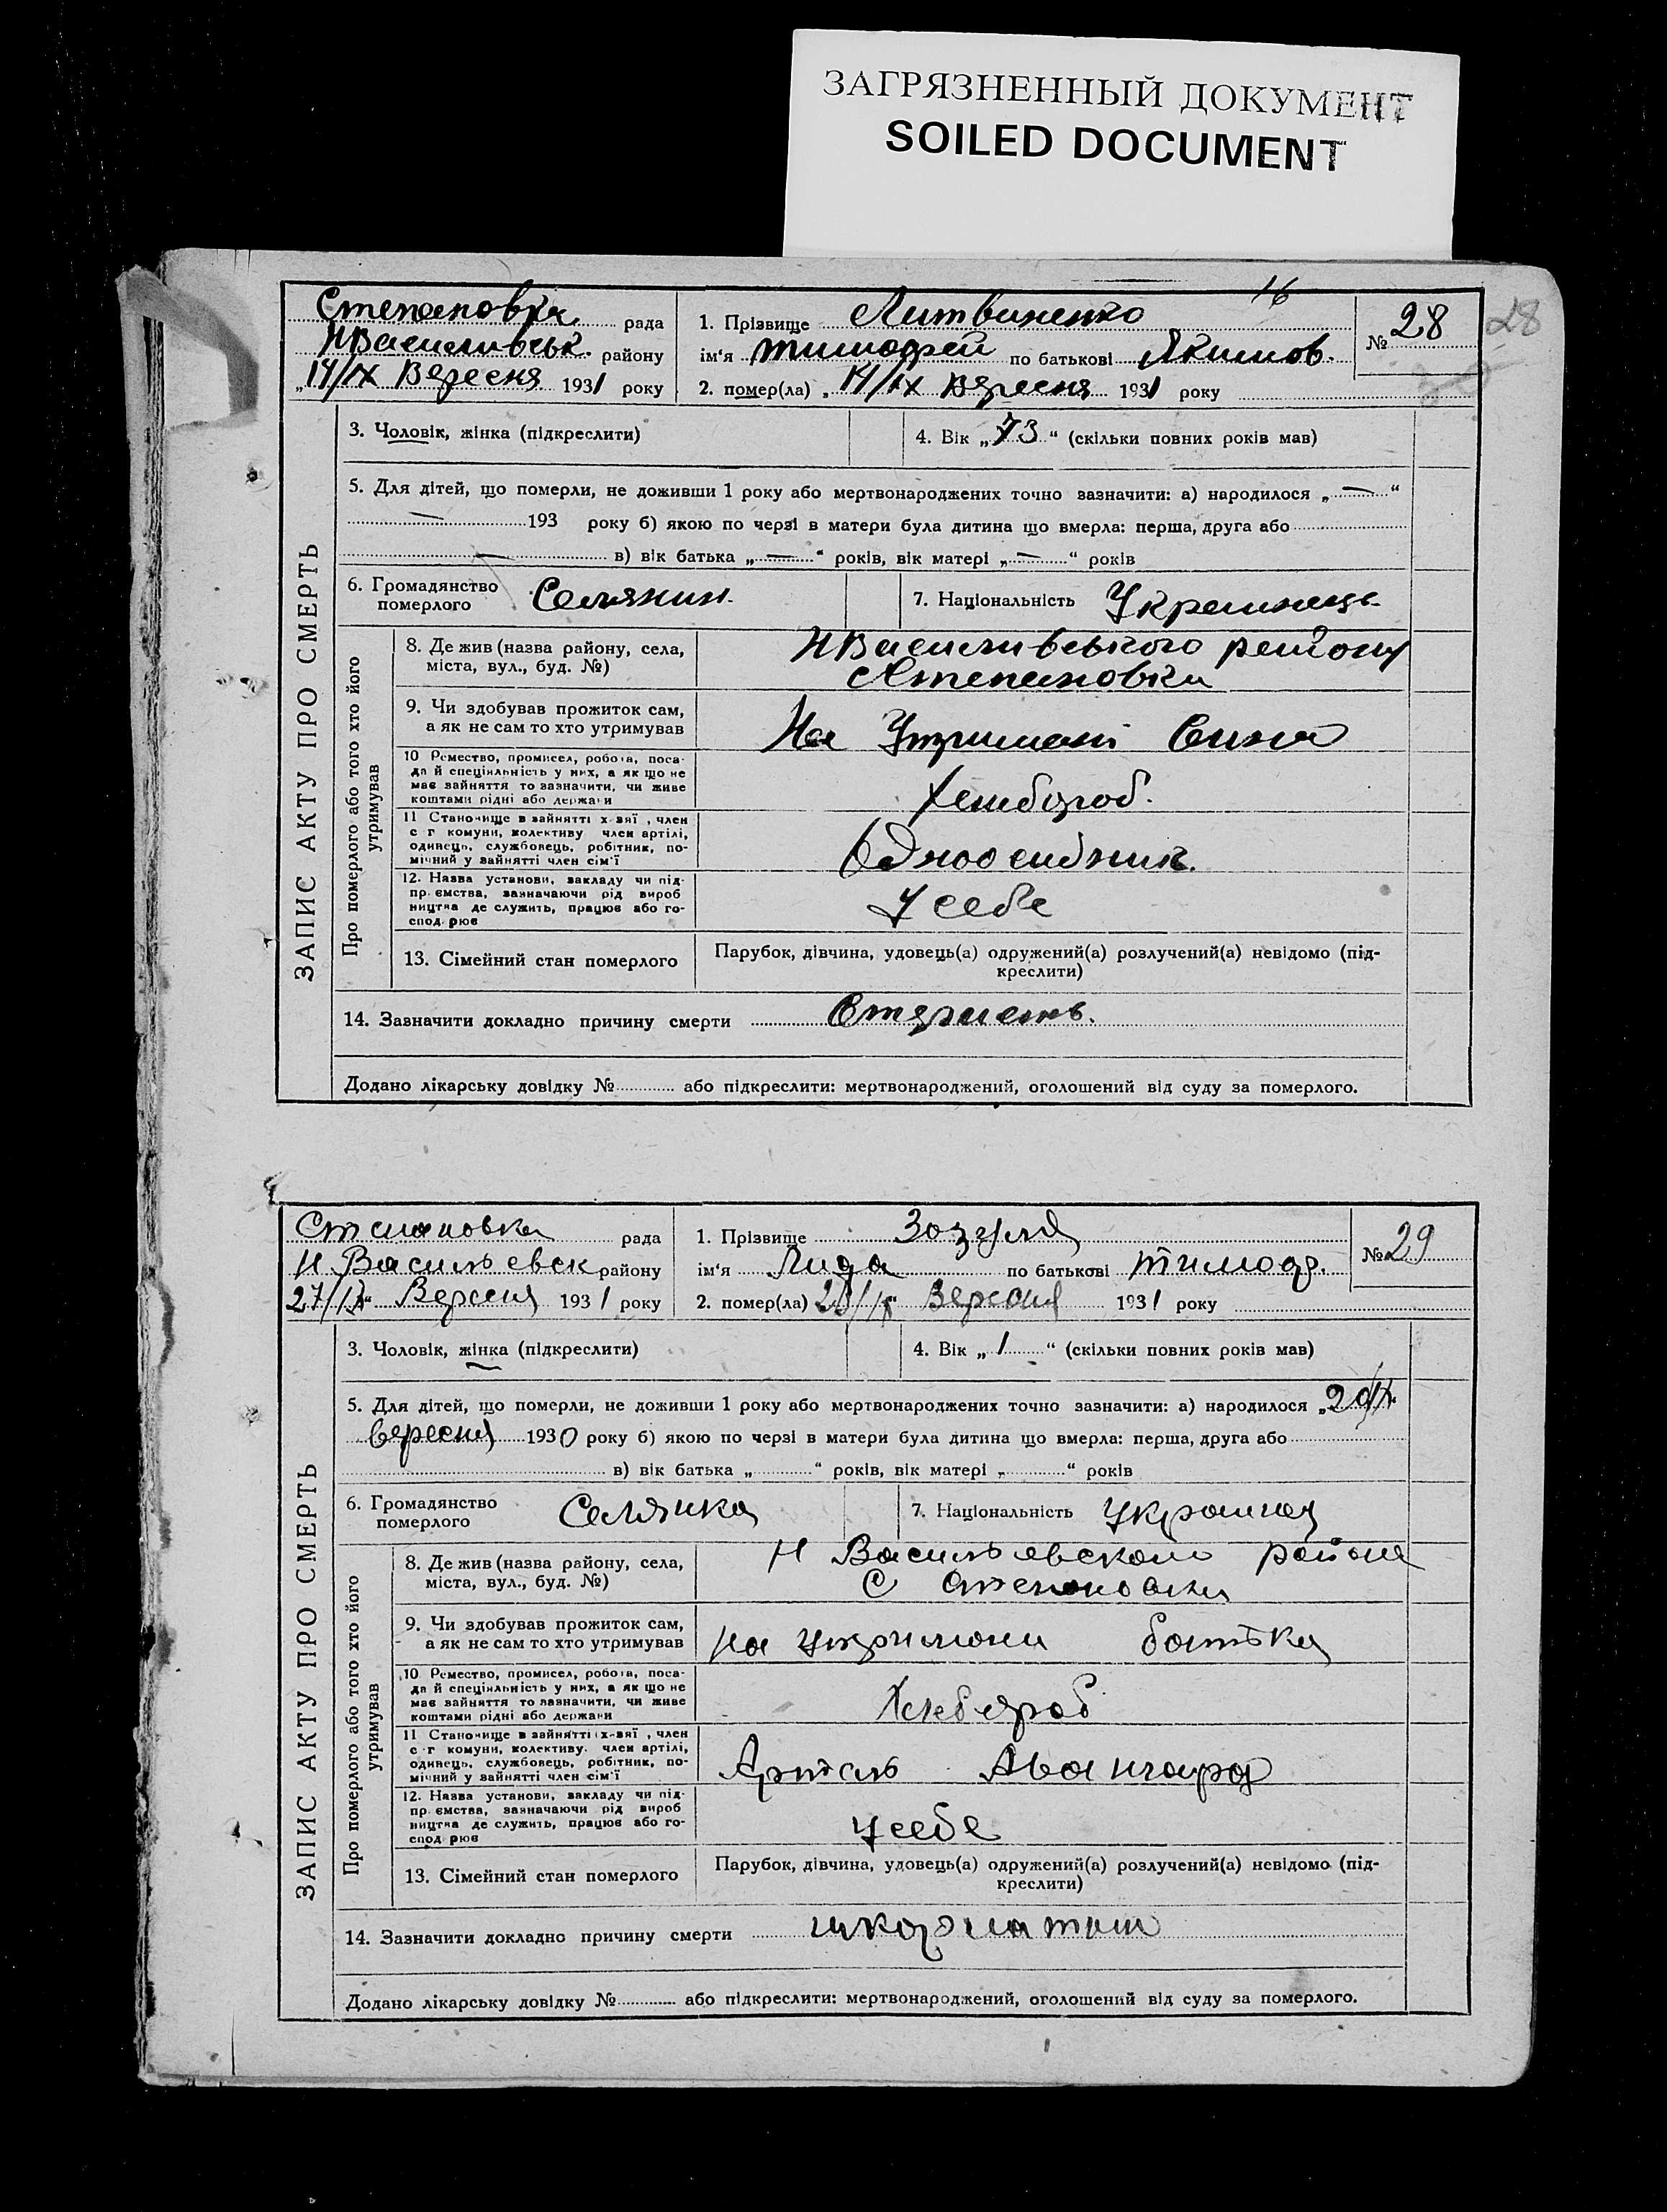 ЗАГРЯЗНЕННЫЙ ДОКУМЕНТ
SOILED DOCUMENT
16
28
Степановка рада
НВасилівськ. району
„14/ІХ Вересня 1931 року
1. Прізвище Литвиненко
ім'я Тимофей по батькові Якимов.
2. помер(ла) „14/ІХ Вересня 1931 року
№ 28
ЗАПИС АКТУ ПРО СМЕРТЬ
3. Чоловік, жінка (підкреслити)
4. Вік „73“ (скільки повних років мав)
5. Для дітей, що померли, не доживши 1 року або мертвонароджених точно зазначити: а) народилося „—“
— 193 року б) якою по черзі в матери була дитина що вмерла: перша, друга або
— в) вік батька „—“ років, вік матері „—“ років
6. Громадянство померлого Селянин
7. Національність Украинець
Про померлого або того хто його утримував
8. Де жив (назва району, села,
міста, вул., буд. №)
НВасилівського району
Степановка
9. Чи здобував прожиток сам,
а як не сам то хто утримував
На Утримані Сина
10 Ремество, промисел, робота, поса-
да й спеціяльність у них, а як що не
має зайняття то зазначити, чи живе
коштами рідні або держави
Хлибороб.
11 Становище в зайнятті х-ваї, член
с г комуни, колективу член артілі,
одинець, службовець, робітник, по-
мічний у зайнятті член сім'ї
Одноосибник.
12. Назва установи, закладу чи під-
пр ємства, зазначаючи рід вироб
ництва де служить, працює або го-
спод рює
У себе
13. Сімейний стан померлого
Парубок, дівчина, удовець(а) одружений(а) розлучений(а) невідомо (під-
креслити)
14. Зазначити докладно причину смерти Старість.
Додано лікарську довідку № або підкреслити: мертвонароджений, оголошений від суду за померлого.
Степановка рада
Н Васильевск району
27/ІХ“ Вересня 1931 року
1. Прізвище Зозуля
ім'я Лида по батькові Тимоф.
2. помер(ла) Вересня 1931 року
№ 29
ЗАПИС АКТУ ПРО СМЕРТЬ
3. Чоловік, жінка (підкреслити)
4. Вік „1“ (скільки повних років мав)
5. Для дітей, що померли, не доживши 1 року або мертвонароджених точно зазначити: а) народилося „
вересня 1930 року б) якою по черзі в матери була дитина що вмерла: перша, друга або
в) вік батька „ “ років, вік матері „ “ років
6. Громадянство померлого Селянка
7. Національність Украинка
Про померлого або того хто його утримував
8. Де жив (назва району, села,
міста, вул., буд. №)
Н Васильевского района
С Степановки
9. Чи здобував прожиток сам,
а як не сам то хто утримував
на утримани батька
10 Ремество, промисел, робота, поса-
да й спеціяльність у них, а як що не
має зайняття то зазначити, чи живе
коштами рідні або держави
Хлебороб
11 Становище в зайнятті х-ваї, член
с г комуни, колективу. член артілі,
одинець, службовець, робітник, по-
мічний у зайнятті член сім'ї
Артель Авангард
12. Назва установи, закладу чи під-
пр ємства, зазначаючи рід вироб
ництва де служить, працює або го-
спод рює
у себе
13. Сімейний стан померлого
Парубок, дівчина, удовець(а) одружений(а) розлучений(а) невідомо (під-
креслити)
14. Зазначити докладно причину смерти
Додано лікарську довідку № або підкреслити: мертвонароджений, оголошений від суду за померлого.